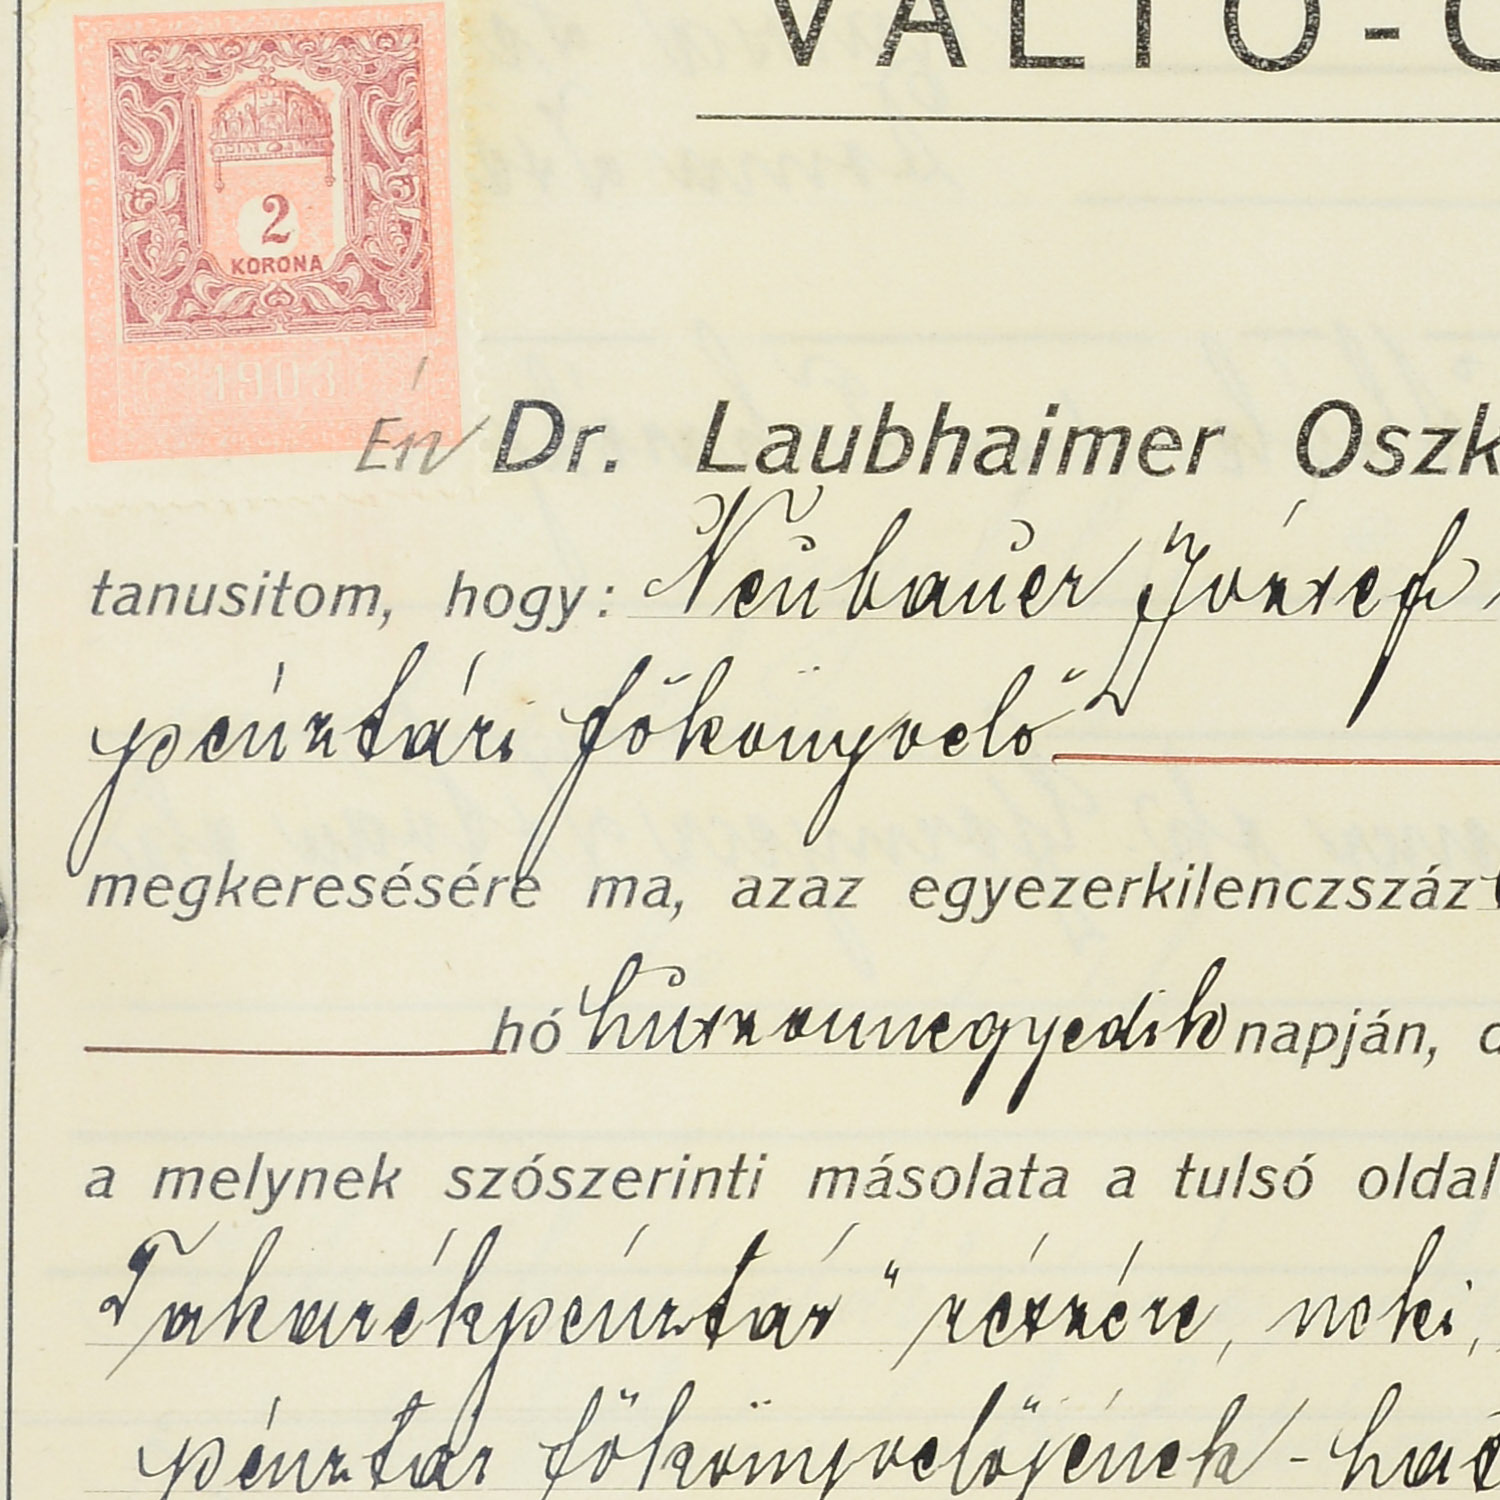 VÁLTÓ-
2
KORONA
1903
Én Dr. Laubhaimer Oszk
tanusitom, hogy: Neubauer József
pénztári főkönyvelő
megkeresésére ma, azaz egyezerkilenczszáz
hó huszonnegyedik napján,
a melynek szószerinti másolata a tulsó oldal
Takarékpénztár" részére, neki,
pénztár főkönyvelőjének -